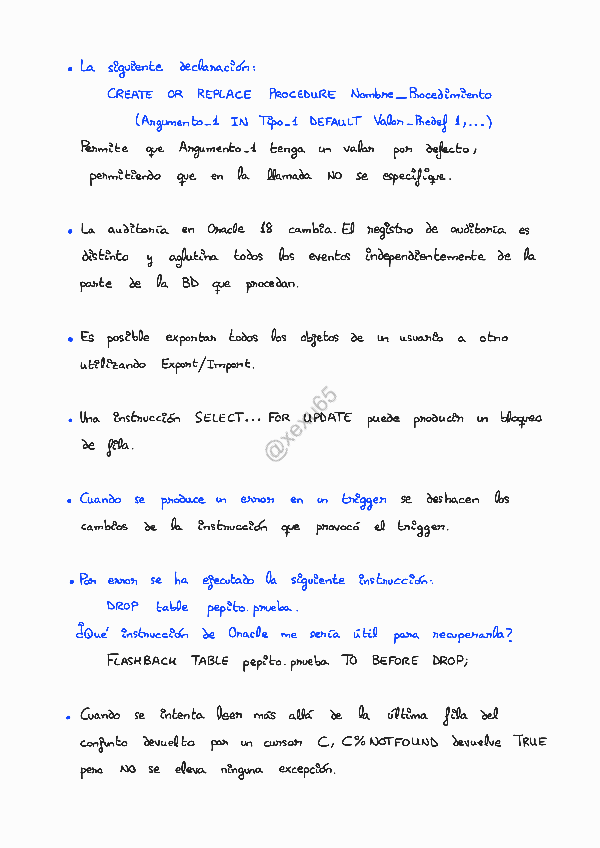 • La siguiente declaración:
CREATE OR REPLACE PROCEDURE Nombre_Procedimiento
(Argumento_1 IN Tipo_1 DEFAULT Valor_Predef 1,...)
Permite que Argumento_1 tenga un valor por defecto,
permitiendo que en la llamada NO se especifique.
• La auditoría en Oracle 18 cambia. El registro de auditoría es
distinto y aglutina todos los eventos independientemente de la
parte de la BD que procedan.
• Es posible exportar todos los objetos de un usuario a otro
utilizando Export/Import.
• Una instrucción SELECT... FOR UPDATE puede producir un bloqueo
de fila.
@xexu65
• Cuando se produce un error en un trigger se deshacen los
cambios de la instrucción que provocó el trigger.
• Por error se ha ejecutado la siguiente instrucción:
DROP table pepito.prueba.
¿Qué instrucción de Oracle me sería útil para recuperarla?
FLASHBACK TABLE pepito.prueba TO BEFORE DROP;
• Cuando se intenta leer más allá de la última fila del
conjunto devuelto por un cursor C, C%NOTFOUND devuelve TRUE
pero NO se eleva ninguna excepción.